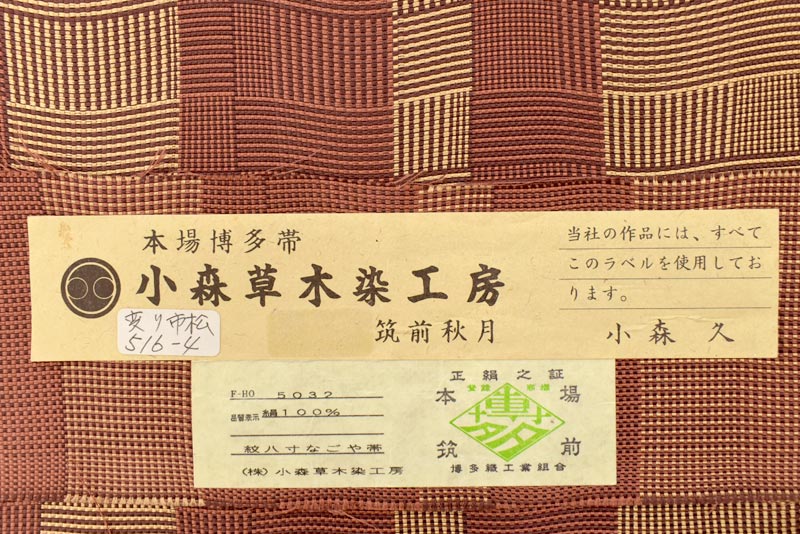 本場博多帯
小森草木染工房
筑前秋月
当社の作品には、すべて
このラベルを使用してお
ります。
小森久
変り市松
516-4
F-HO 5032
品質表示 絹100%
紋八寸なごや帯
(株)小森草木染工房
正絹之証
登録 商標
本場
博多
筑前
博多織工業組合